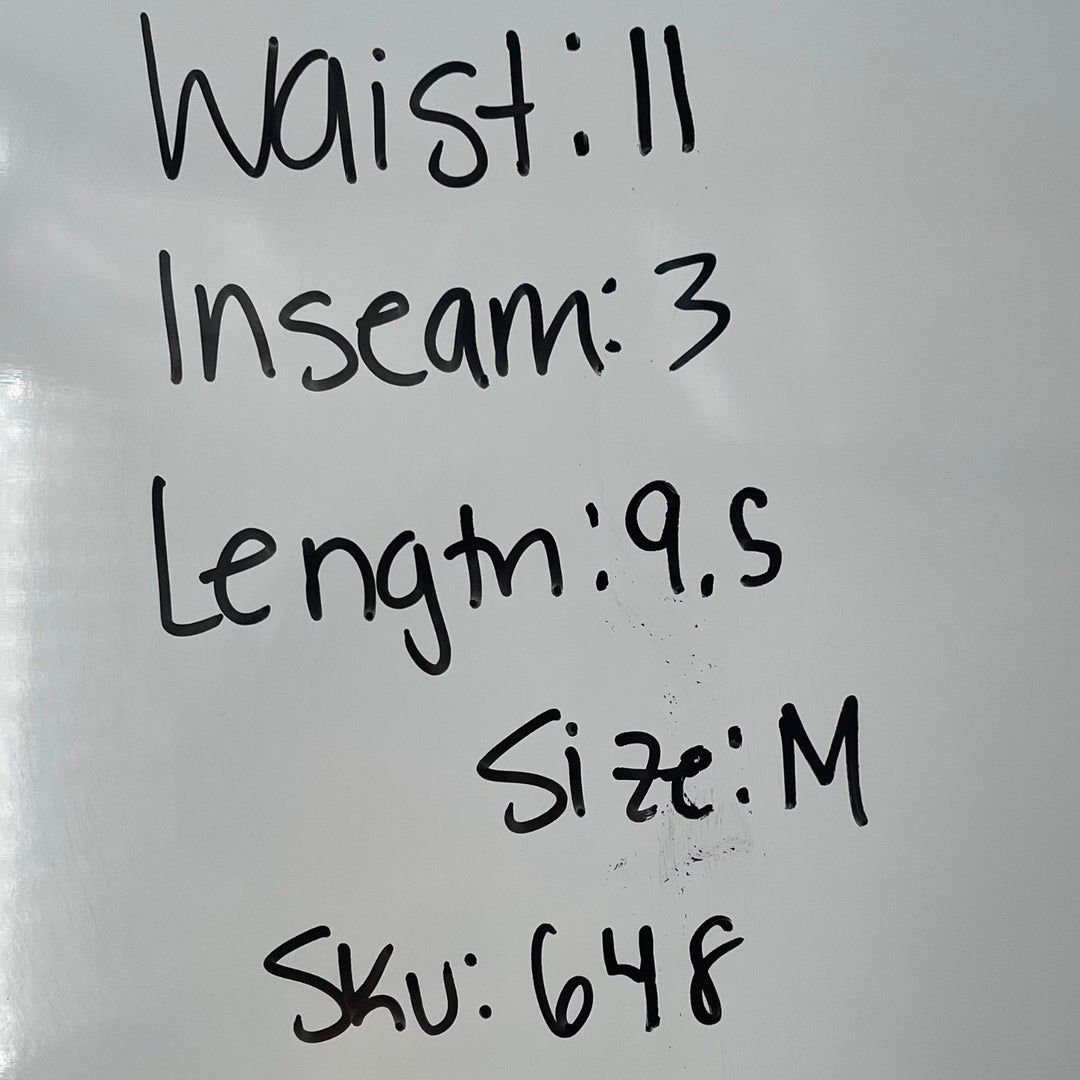 Waist: 11
Inseam: 3
Length: 9.5
Size: M
SKU: 648